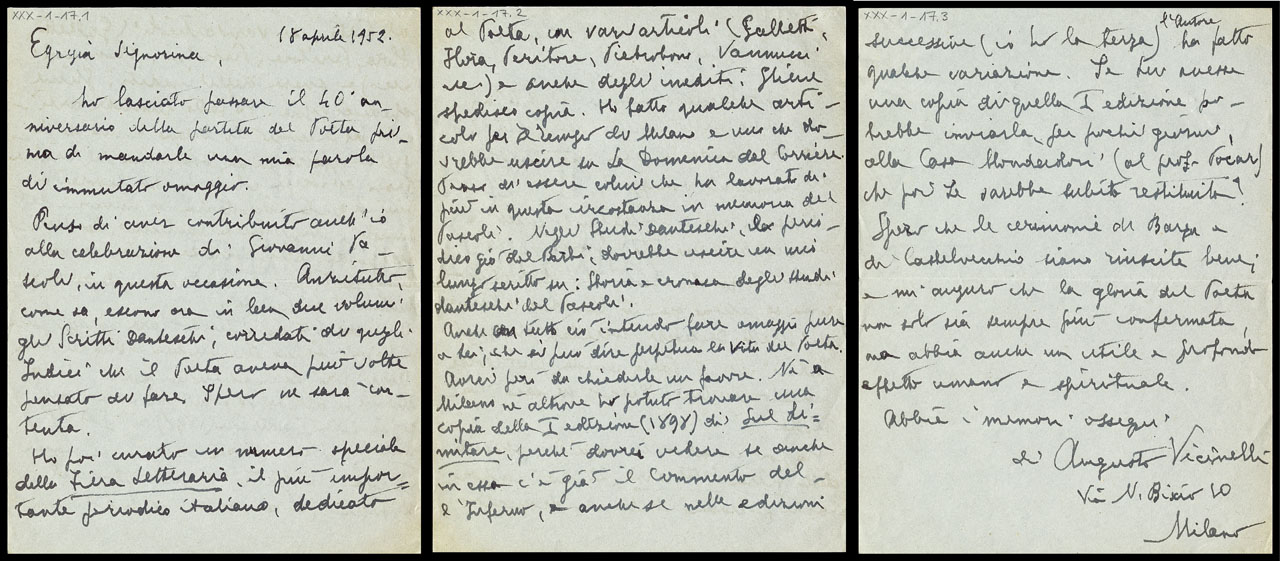 XXX-1-17.1
18 aprile 1952.
Egregia Signorina,
ho lasciato passare il 40° an-
niversario della partita del Poeta pri-
ma di mandarle una mia parola
di immutato omaggio.
Penso di aver contribuito anch'io
alla celebrazione di Giovanni Pa-
scoli, in questa occasione. Anzitutto,
come sa, escono ora in ben due volumi
gli Scritti Danteschi, corredati di quegli
Indici che il Poeta aveva più volte
pensato di fare. Spero ne sarà con-
tenta.
Ho poi curato un numero speciale
della Fiera Letteraria, il più impor-
tante periodico italiano, dedicato
XXX-1-17.2
al Poeta, con vari articoli (Galletti,
Flora, Peritore, Pietrobono, Vannucci
ecc) e anche degli inediti: Gliene
spedisco copia. Ho fatto qualche arti-
colo per Il Tempo di Milano e uno che do-
vrebbe uscire su La Domenica del Corriere.
Penso d'essere colui che ha lavorato di
più in questa circostanza in memoria del
Pascoli. Negli Studi Danteschi, perio-
dico già del Barbi, dovrebbe uscire un mio
lungo scritto su: Storia e cronaca degli studi
danteschi del Pascoli.
Anche con tutto ciò intendo fare omaggio pure
a Lei, che si può dire perpetua la vita del Poeta.
Avrei però da chiederle un favore. Né a
Milano né altrove ho potuto trovare una
copia della I edizione (1898) di Sul li-
mitare, perché dovrei vedere se anche
in essa c'è già il Commento del-
l'Inferno, e anche se nelle edizioni
XXX-1-17.3
successive (io ho la terza) l'Autore ha fatto
qualche variazione. Se Lei avesse
una copia di quella I edizione po-
trebbe inviarla, per pochi giorni,
alla Casa Mondadori (al prof. Pocar)
che poi Le sarebbe subito restituita?
Spero che le cerimonie di Barga e
di Castelvecchio siano riuscite bene;
e mi auguro che la gloria del Poeta
non solo sia sempre più confermata,
ma abbia anche un utile e profondo
effetto umano e spirituale.
Abbia i memori ossequi
di Augusto Vicinelli
Via N. Bixio 30
Milano